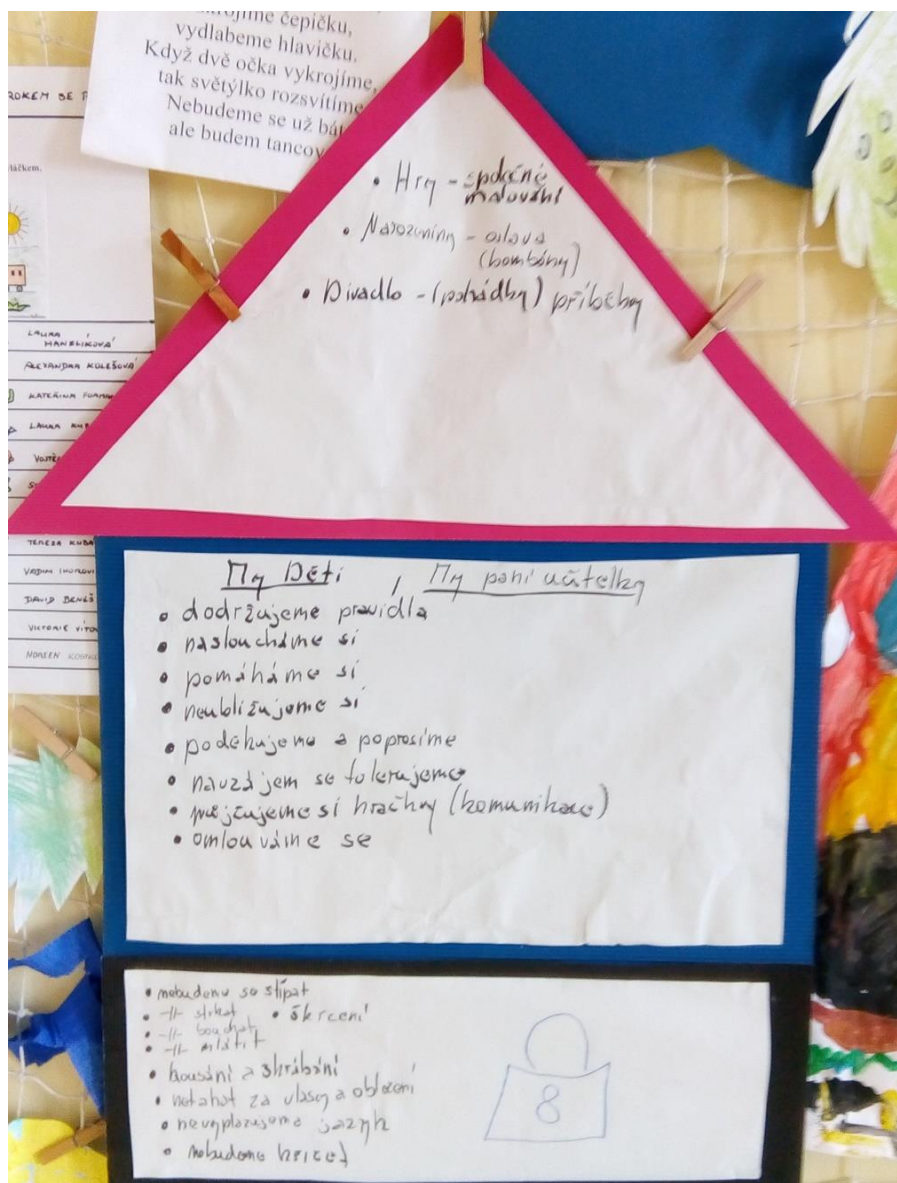 čepičku,
vydlabeme hlavičku.
Když dvě očka vykrojíme,
tak světýlko rozsvítíme
Nebudeme se už
ale budem
ROKEM SE
LAURA
HANELIKOVÁ
ALEXANDRA KOLEŠOVÁ
KATEŘINA
LAURA
TEREZA KUBA
VADIM
DAVID BENEŠ
VIKTORIE
NOREEN
• Hry - společné
malování
• Narozeniny - oslava
(bombóny)
• Divadlo - (pohádky) příběhy
My Děti, My paní učitelky
• dodržujeme pravidla
• nasloucháme si
• pomáháme si
• neubližujeme si
• poděkujeme a poprosíme
• navzájem se tolerujeme
• půjčujeme si hračky (komunikace)
• omlouváme se
• nebudeme se štípat
• -//- strkat • škrcení
• -//- bouchat
• -//- mlátit
• kousání a škrábání
• netahat za vlasy a oblečení
• nevyplazujeme jazyk
• nebudeme křičet
8